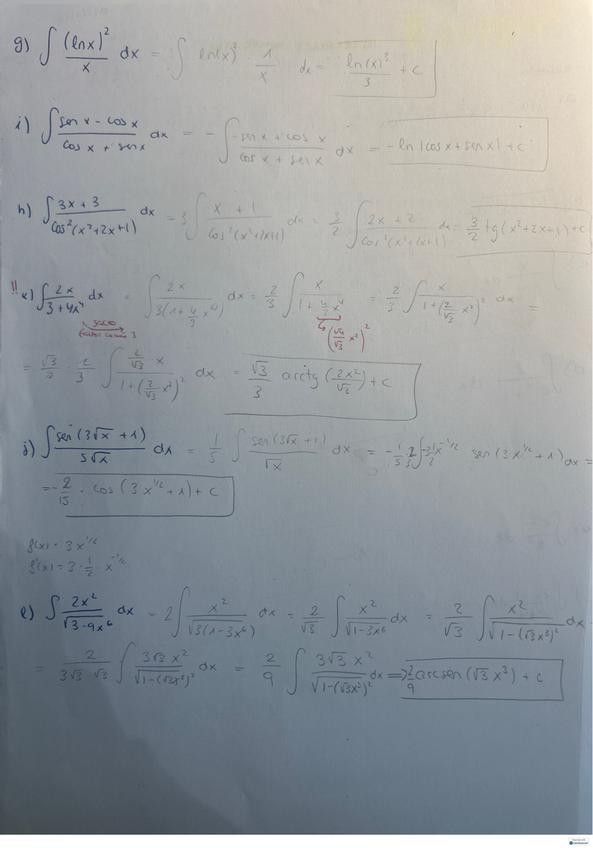 g) ∫ (lnx)²/x dx = ∫ ln(x)² · 1/x dx = ln(x)³/3 + c
i) ∫ (sen x - cos x)/(cos x + sen x) dx = - ∫ (-sen x + cos x)/(cos x + sen x) dx = -ln|cos x + sen x| + c
h) ∫ (3x + 3)/(cos²(x²+2x+1)) dx = 3 ∫ (x + 1)/(cos²(x²+2x+1)) dx = 3/2 ∫ (2x + 2)/(cos²(x²+2x+1)) dx = 3/2 tg(x²+2x+1) + c
!! k) ∫ 2x/(3 + 4x⁴) dx = ∫ 2x/(3(1 + 4/3 x⁴)) dx = 2/3 ∫ x/(1 + 4/3 x⁴) = 2/3 ∫ x/(1 + (2/√3 x²)²) dx =
factor común 3
(√4/√3 x²)²
= √3/2 · 2/3 ∫ (2/√3 x)/(1 + (2/√3 x²)²) dx = √3/3 arctg(2x²/√3) + c
j) ∫ sen(3√x + 1)/(5√x) dx = 1/5 ∫ sen(3√x + 1)/√x dx =
= -2/15 · cos(3x^1/2 + 1) + c
f(x) = 3x^1/2
f'(x) = 3 · 1/2 · x^-1/2
l) ∫ 2x²/√(3-9x⁶) dx = 2 ∫ x²/√(3(1-3x⁶)) dx = 2/√3 ∫ x²/√(1-3x⁶) dx = 2/√3 ∫ x²/√(1-(√3x³)²) dx
= 2/(3√3 · √3) ∫ 3√3 x²/√(1-(√3x³)²) dx = 2/9 ∫ 3√3 x²/√(1-(√3x³)²) dx => 2/9 arcsen(√3 x³) + c